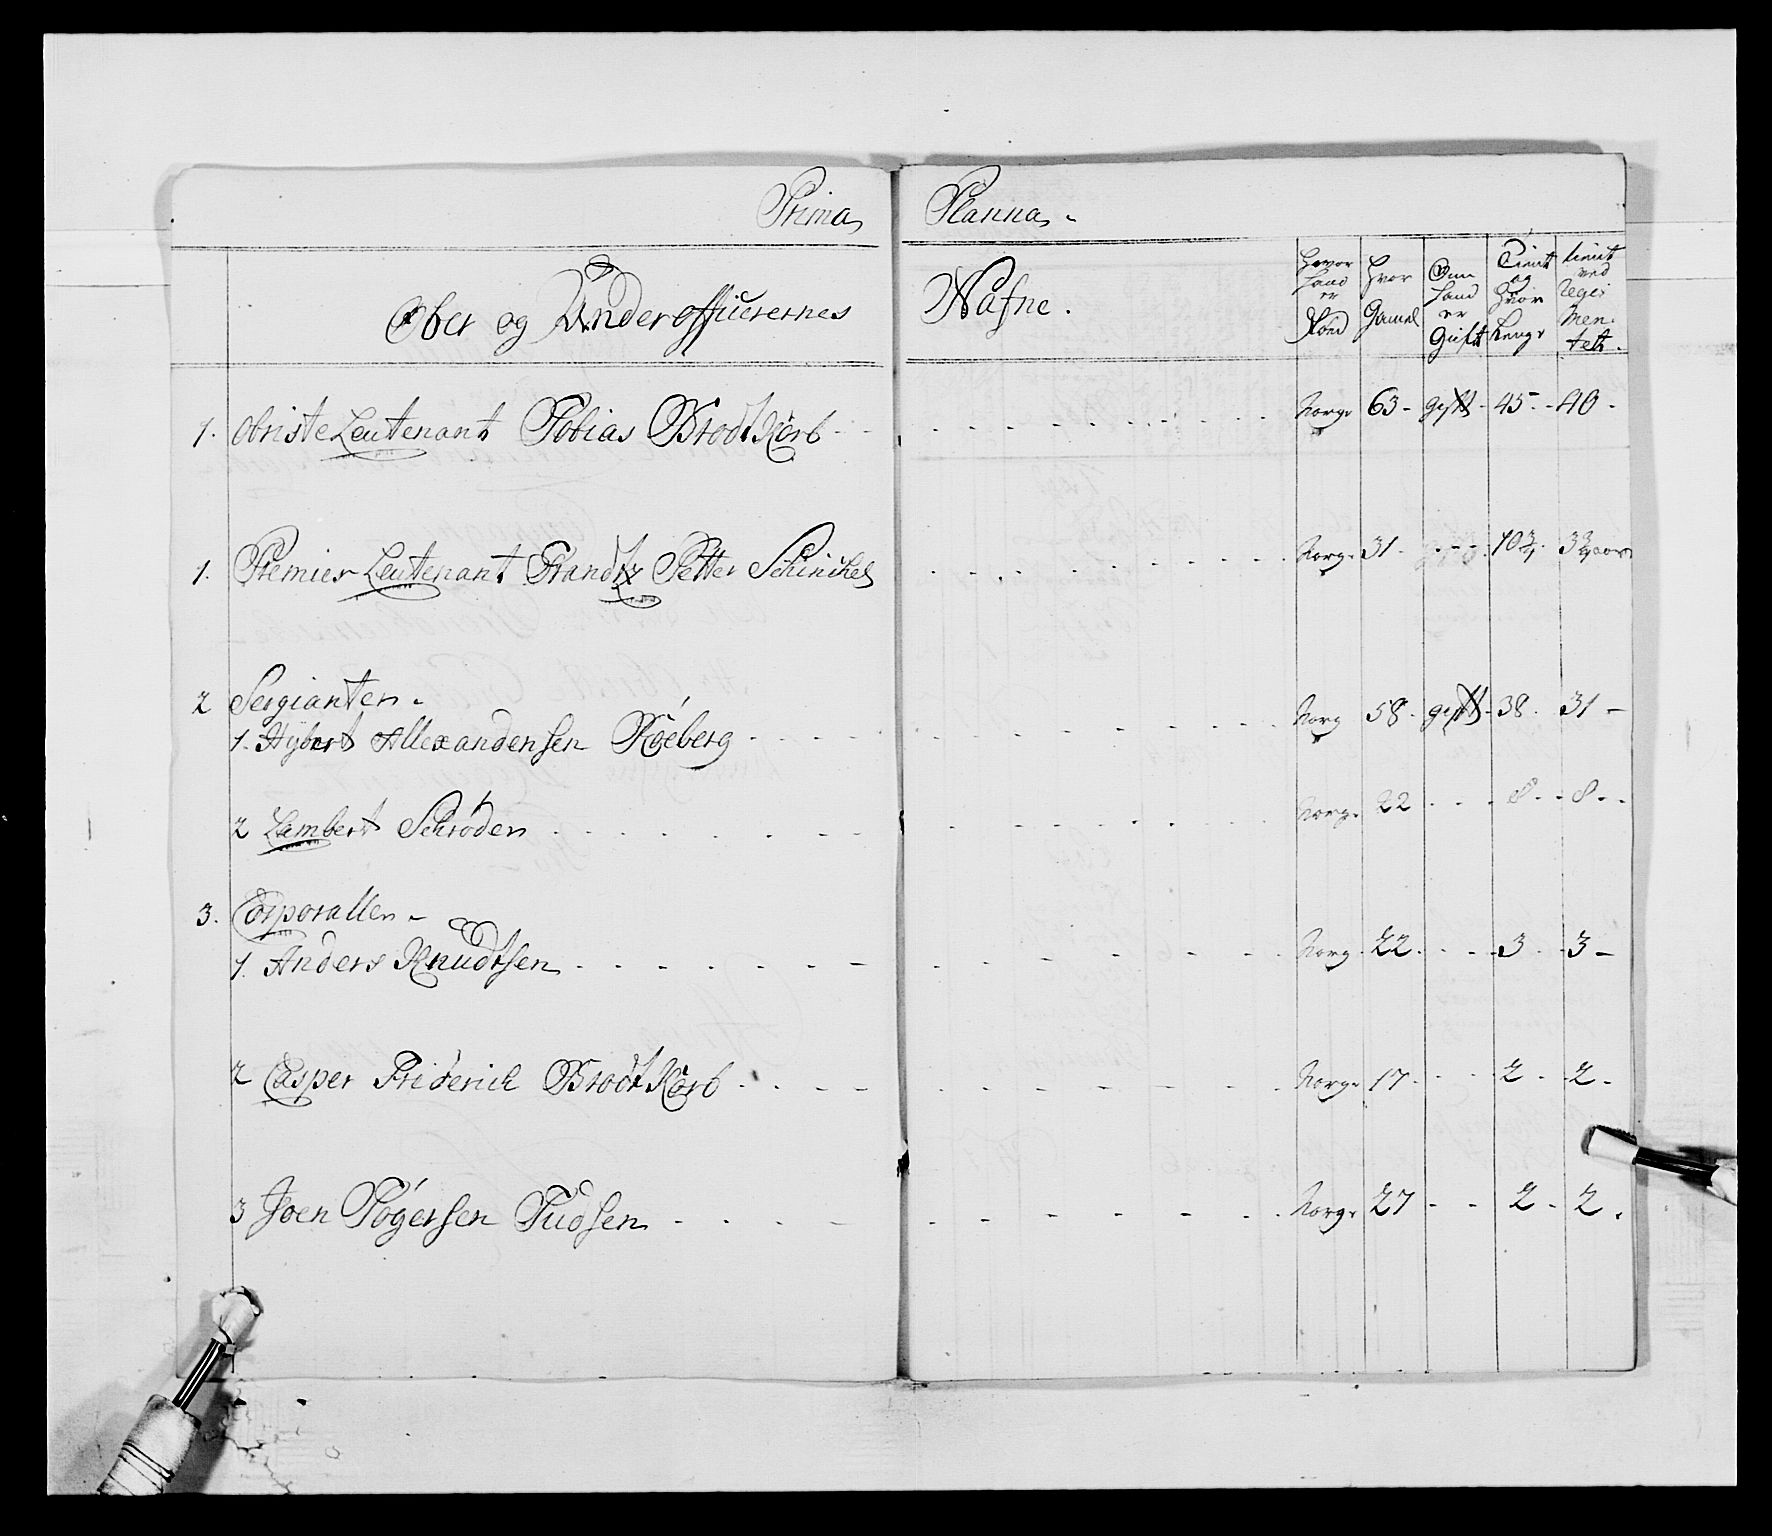 Prima Planna.
Ober og Underofficerernes Nafne.
Hvor Land er Fød
Hvor Gamel
Om hand er Gift
Tient og Hvor Lenge
tient ved Regimentet.
1. Obriste Leutenant Tobias BrodtKorb Norge 63 gift 45 40
1. Premier Leutenant Frandtz Petter Schinckel Norge 31 10 3/4 3 3/4 aar
2 Sergianter
1. Hÿbert Allexandersen Røeberg Norg 58 gift 38 31
2 Lambert Schrøder Norge 22 8 8
3. Corporaller
1. Anders Knudtsen Norg 22 3 3
2 Casper Friderich BrodtKorb Norge 17 2 2
3 Joen Tøgersen Tudsen Norge 27 2 2